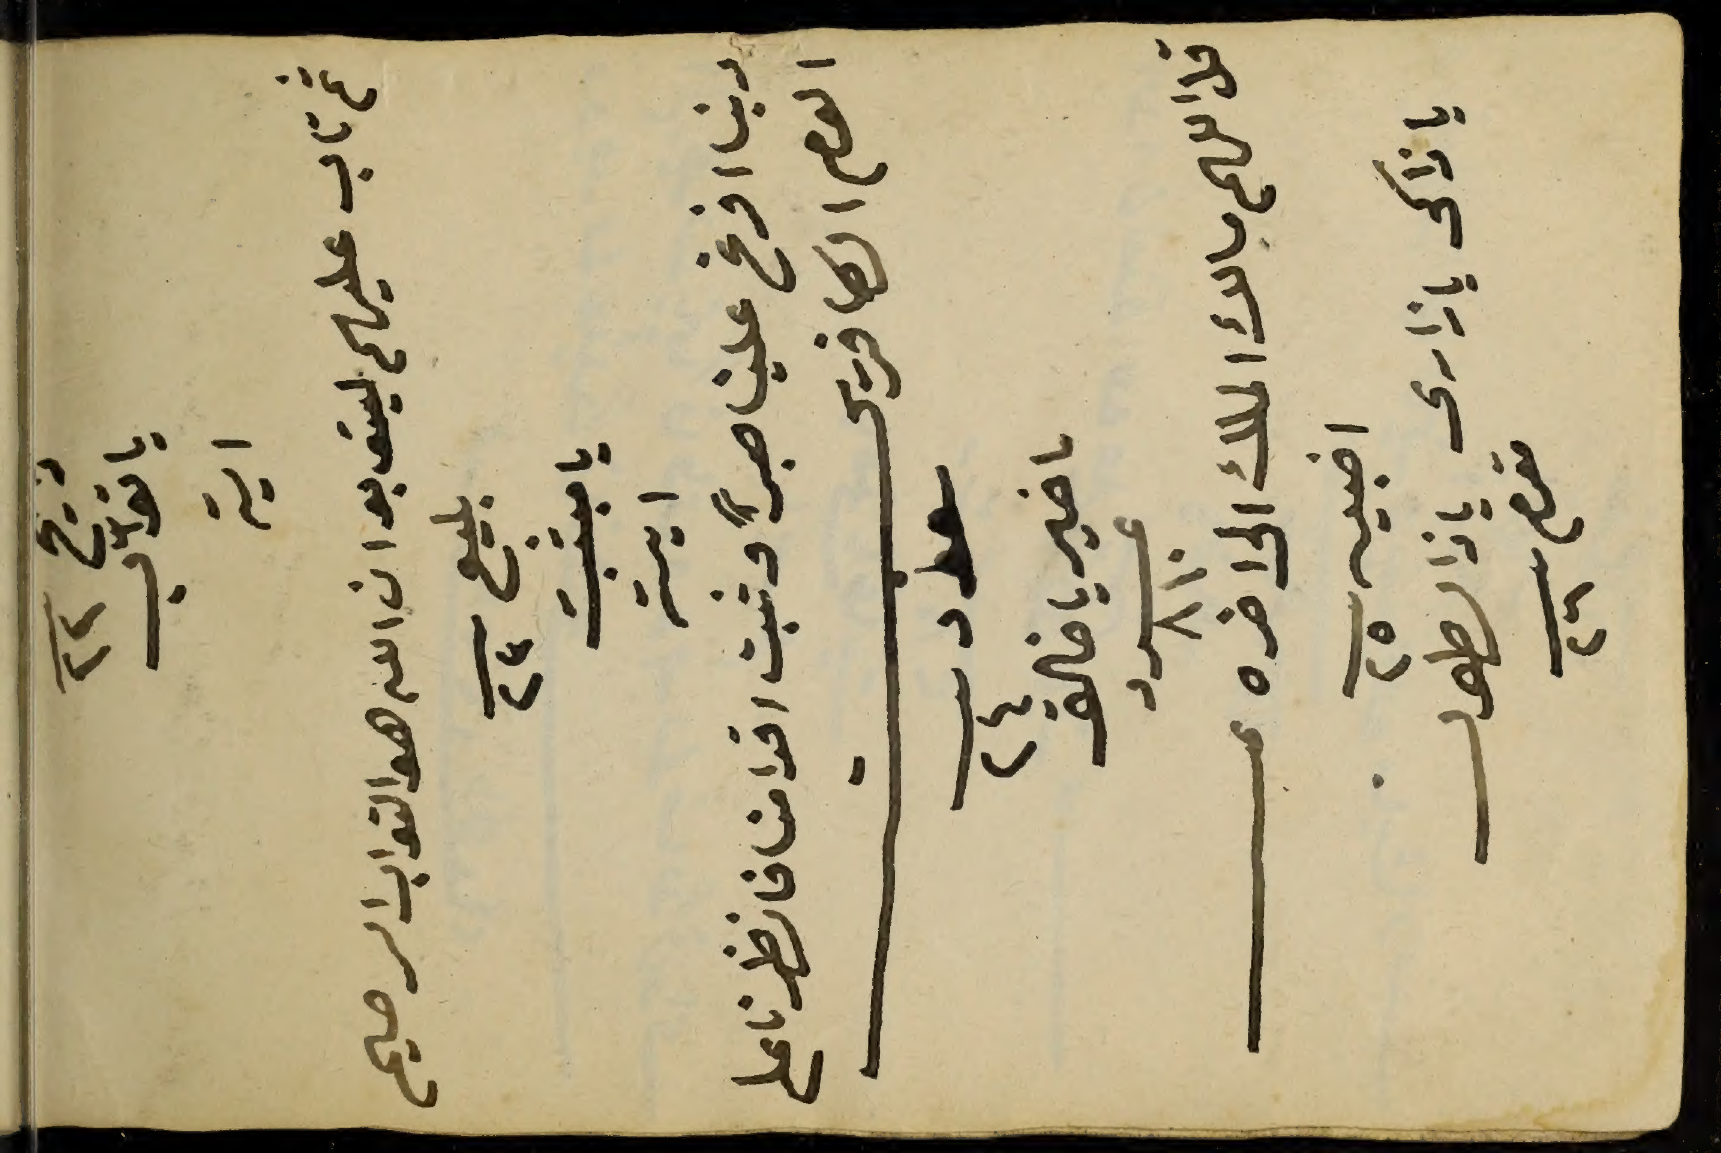 يا تواب
اية
ثم تاب عليهم ليتوبوا ان الله هو التواب الرحيم
٢٤
يا مثبت
اية
ربنا افرغ علينا صبراً وثبت اقدامنا فانظرنا على
القوم الكافرين
٢٤
يا خبير يا خالق
عدد
٨١٠
قل اللهم مالك الملك الى اخره
٢٥
يا ذاكى يا ذارى يا ذا الطول
٢٦